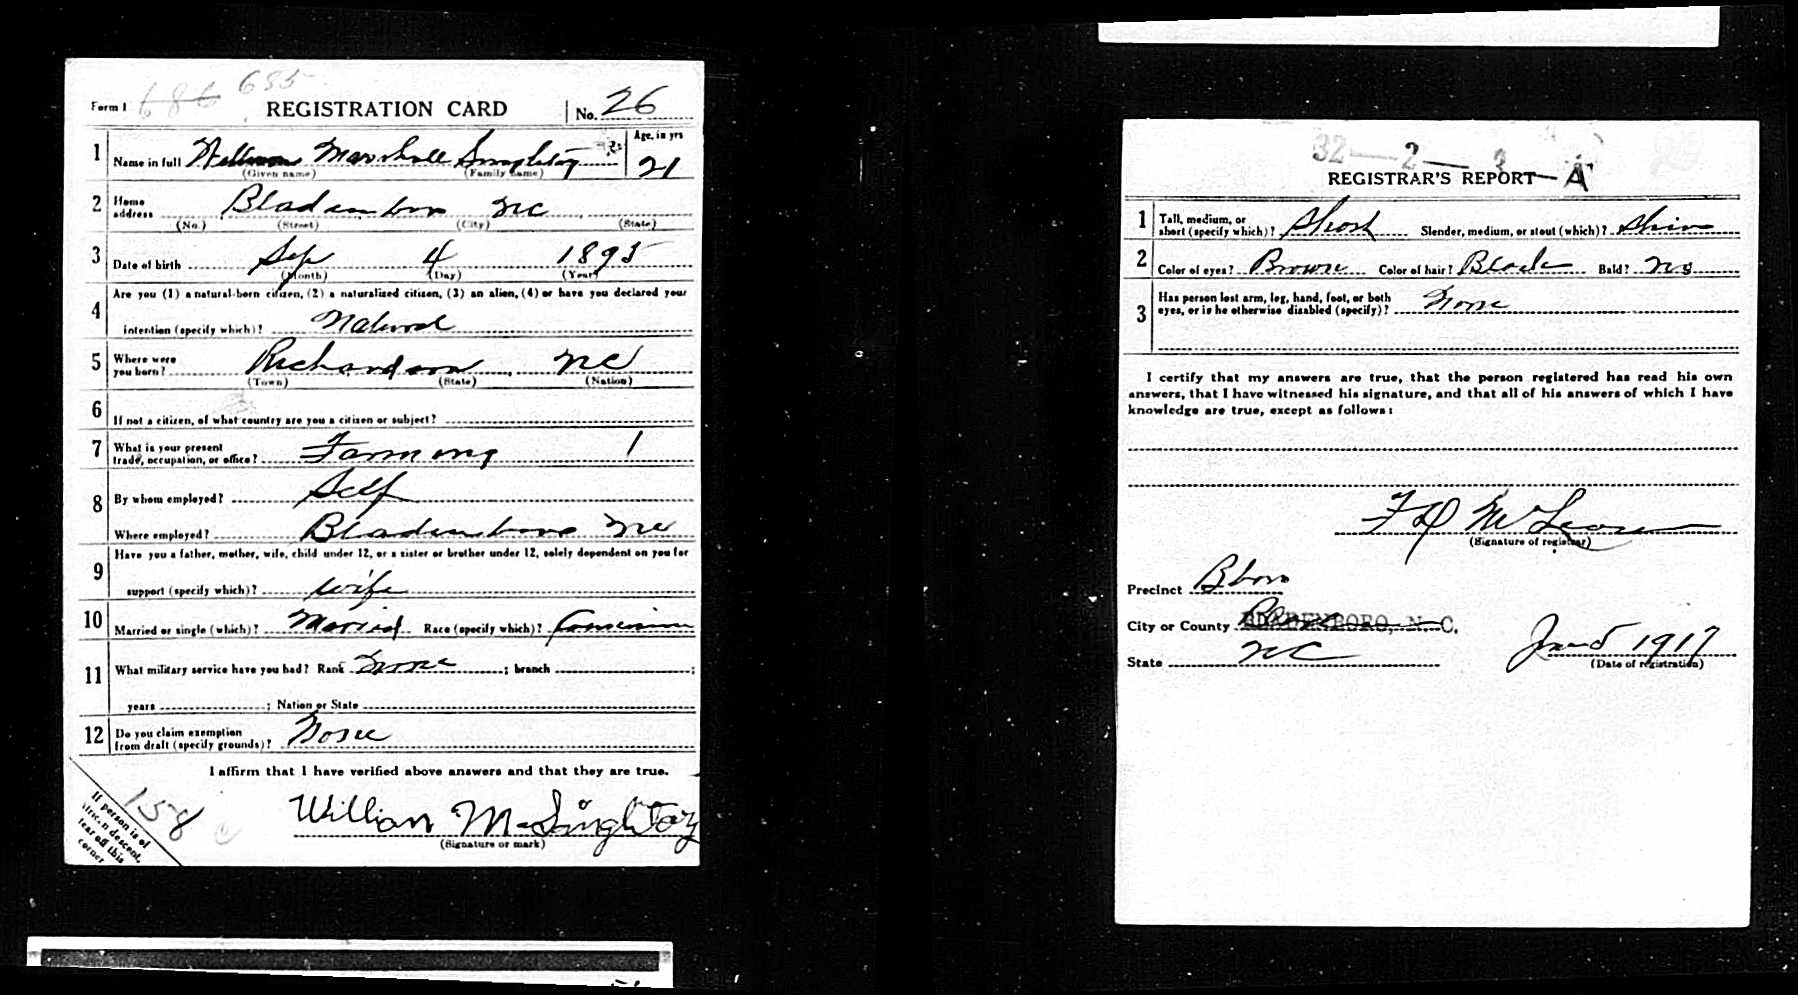 Form 1 686 685 REGISTRATION CARD No. 26
1 Name in full William Marshall Singletay Age, in yrs 21
(Given name) (Family name)
2 Home address Bladenboro NC
(No.) (Street) (City) (State)
3 Date of birth Sep 4 1895
(Month) (Day) (Year)
4 Are you (1) a natural-born citizen, (2) a naturalized citizen, (3) an alien, (4) or have you declared your
intention (specify which)? Natural
5 Where were you born? Richardson, NC
(Town) (State) (Nation)
6 If not a citizen, of what country are you a citizen or subject?
7 What is your present trade, occupation, or office? Farming 1
8 By whom employed? Self
Where employed? Bladenboro NC
9 Have you a father, mother, wife, child under 12, or a sister or brother under 12, solely dependent on you for
support (specify which)? wife
10 Married or single (which)? Married Race (specify which)? Caucasian
11 What military service have you had? Rank None ; branch ;
years ; Nation or State
12 Do you claim exemption from draft (specify grounds)? None
I affirm that I have verified above answers and that they are true.
158
William M. Singletay
(Signature or mark)
If person is of
African descent,
tear off this
corner
32 2 3 A
REGISTRAR'S REPORT
1 Tall, medium, or short (specify which)? Short Slender, medium, or stout (which)? Slim
2 Color of eyes? Brown Color of hair? Black Bald? No
3 Has person lost arm, leg, hand, foot, or both
eyes, or is he otherwise disabled (specify)? None
I certify that my answers are true, that the person registered has read his own
answers, that I have witnessed his signature, and that all of his answers of which I have
knowledge are true, except as follows:
(Signature of registrar)
Precinct Bboro
City or County BLADENBORO, N. C.
State NC June 5 1917
(Date of registration)